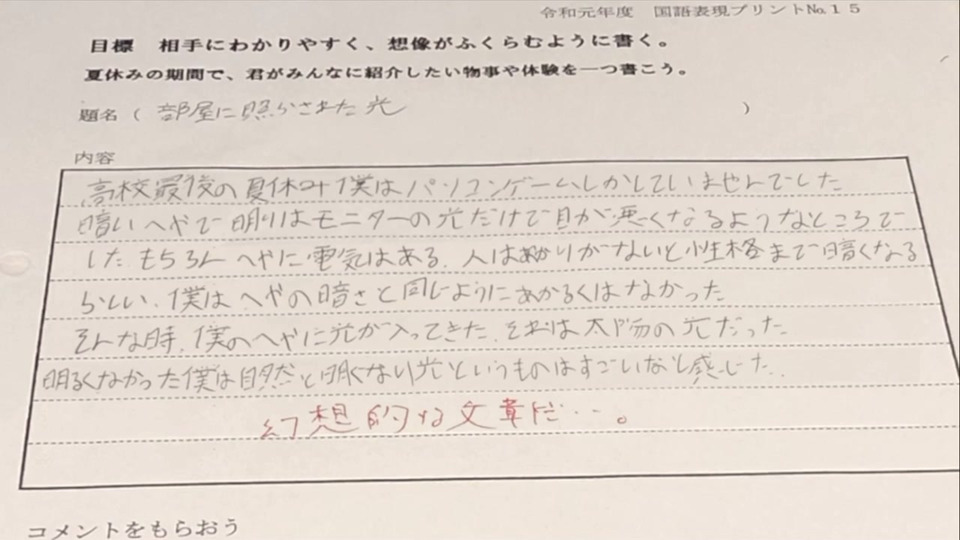 令和元年度　国語表現プリント№１５
目標　相手にわかりやすく、想像がふくらむように書く。
夏休みの期間で、君がみんなに紹介したい物事や体験を一つ書こう。
題名（ 部屋に照らされた光 ）
内容
高校最後の夏休み僕はパソコンゲームしかしていませんでした
暗いへやで明りはモニターの光だけで目が悪くなるようなところで
したもちろんへやに電気はある、人はあかりがないと性格まで暗くなる
らしい、僕はへやの暗さと同じようにあかるくはなかった
そんな時、僕のへやに光が入ってきた、それは太陽の光だった
明るくなかった僕は自然と明くなり光というものはすごいなと感じた、
幻想的な文章だ…。
コメントをもらおう